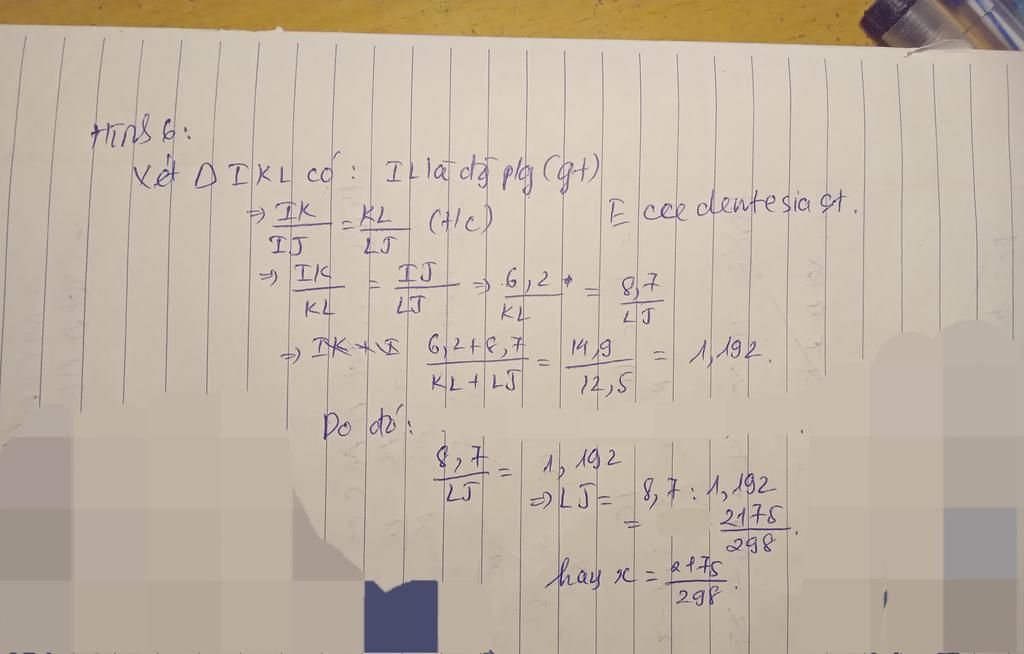 Hình 6:
Xét Δ IKL có: IL là đg plg (gt)
⇒ IK/IJ = KL/LJ (t/c)
⇒ IK/KL = IJ/LJ ⇒ 6,2/KL = 8,7/LJ
⇒ (6,2+8,7)/(KL+LJ) = 14,9/12,5 = 1,192.
Do đó:
8,7/LJ = 1,192
⇒ LJ = 8,7 : 1,192
= 2175/298.
hay x = 2175/298.